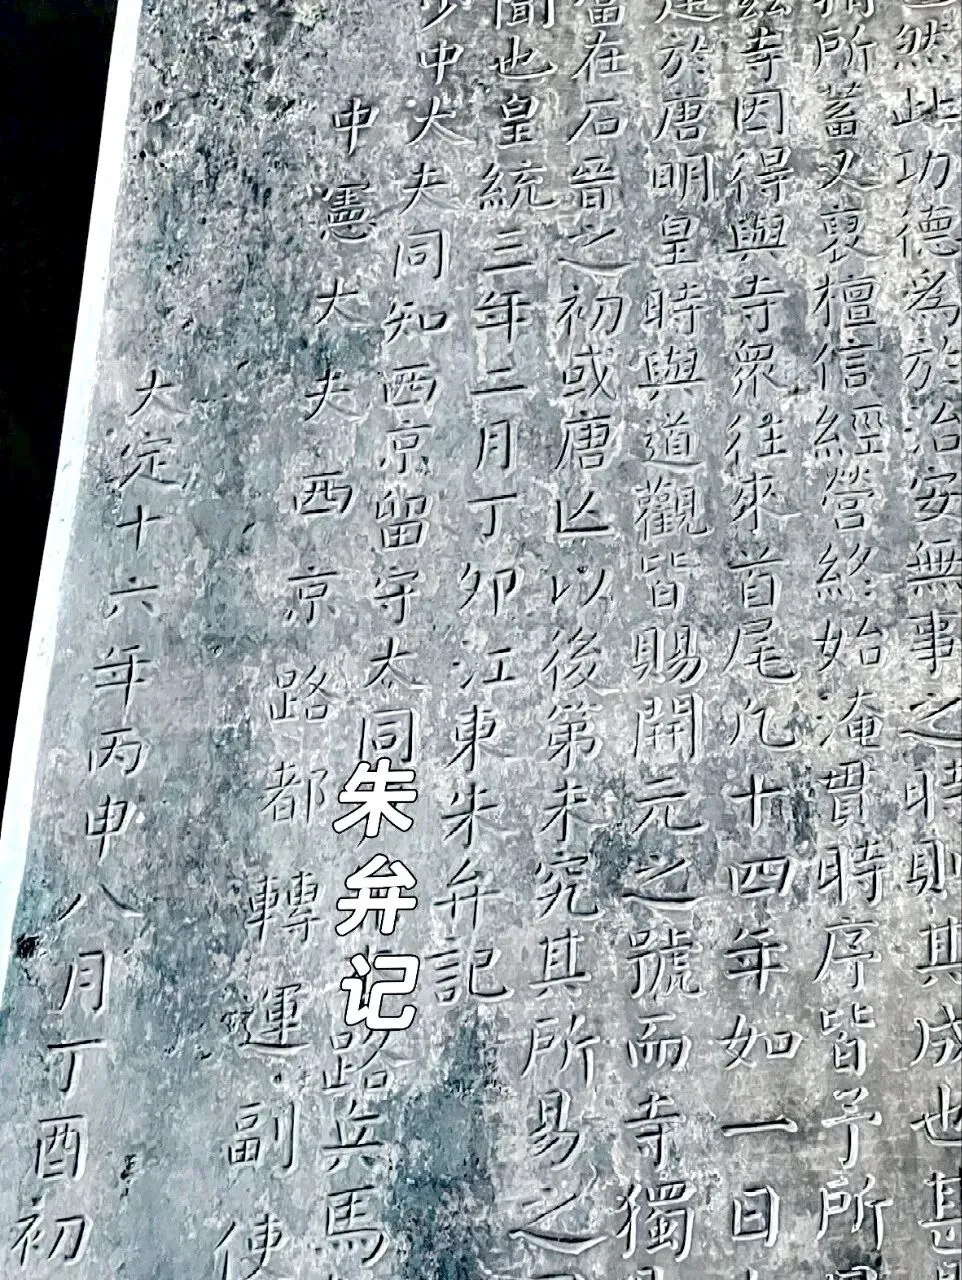 然此功德為於治安無事之時則其成也甚
所蓄又裒檀信經營終始淹貫時序皆予所
茲寺因得與寺衆往來首尾凡十四年如一日
建於唐明皇時與道觀皆賜開元之號而寺獨
當在石晉之初或唐亡以後第未究其所易之
聞也皇統三年二月丁卯江東朱弁記
少中大夫同知西京留守大同
路兵馬
中憲大夫西京路都轉運副使
大定十六年丙申八月丁酉初
朱弁记